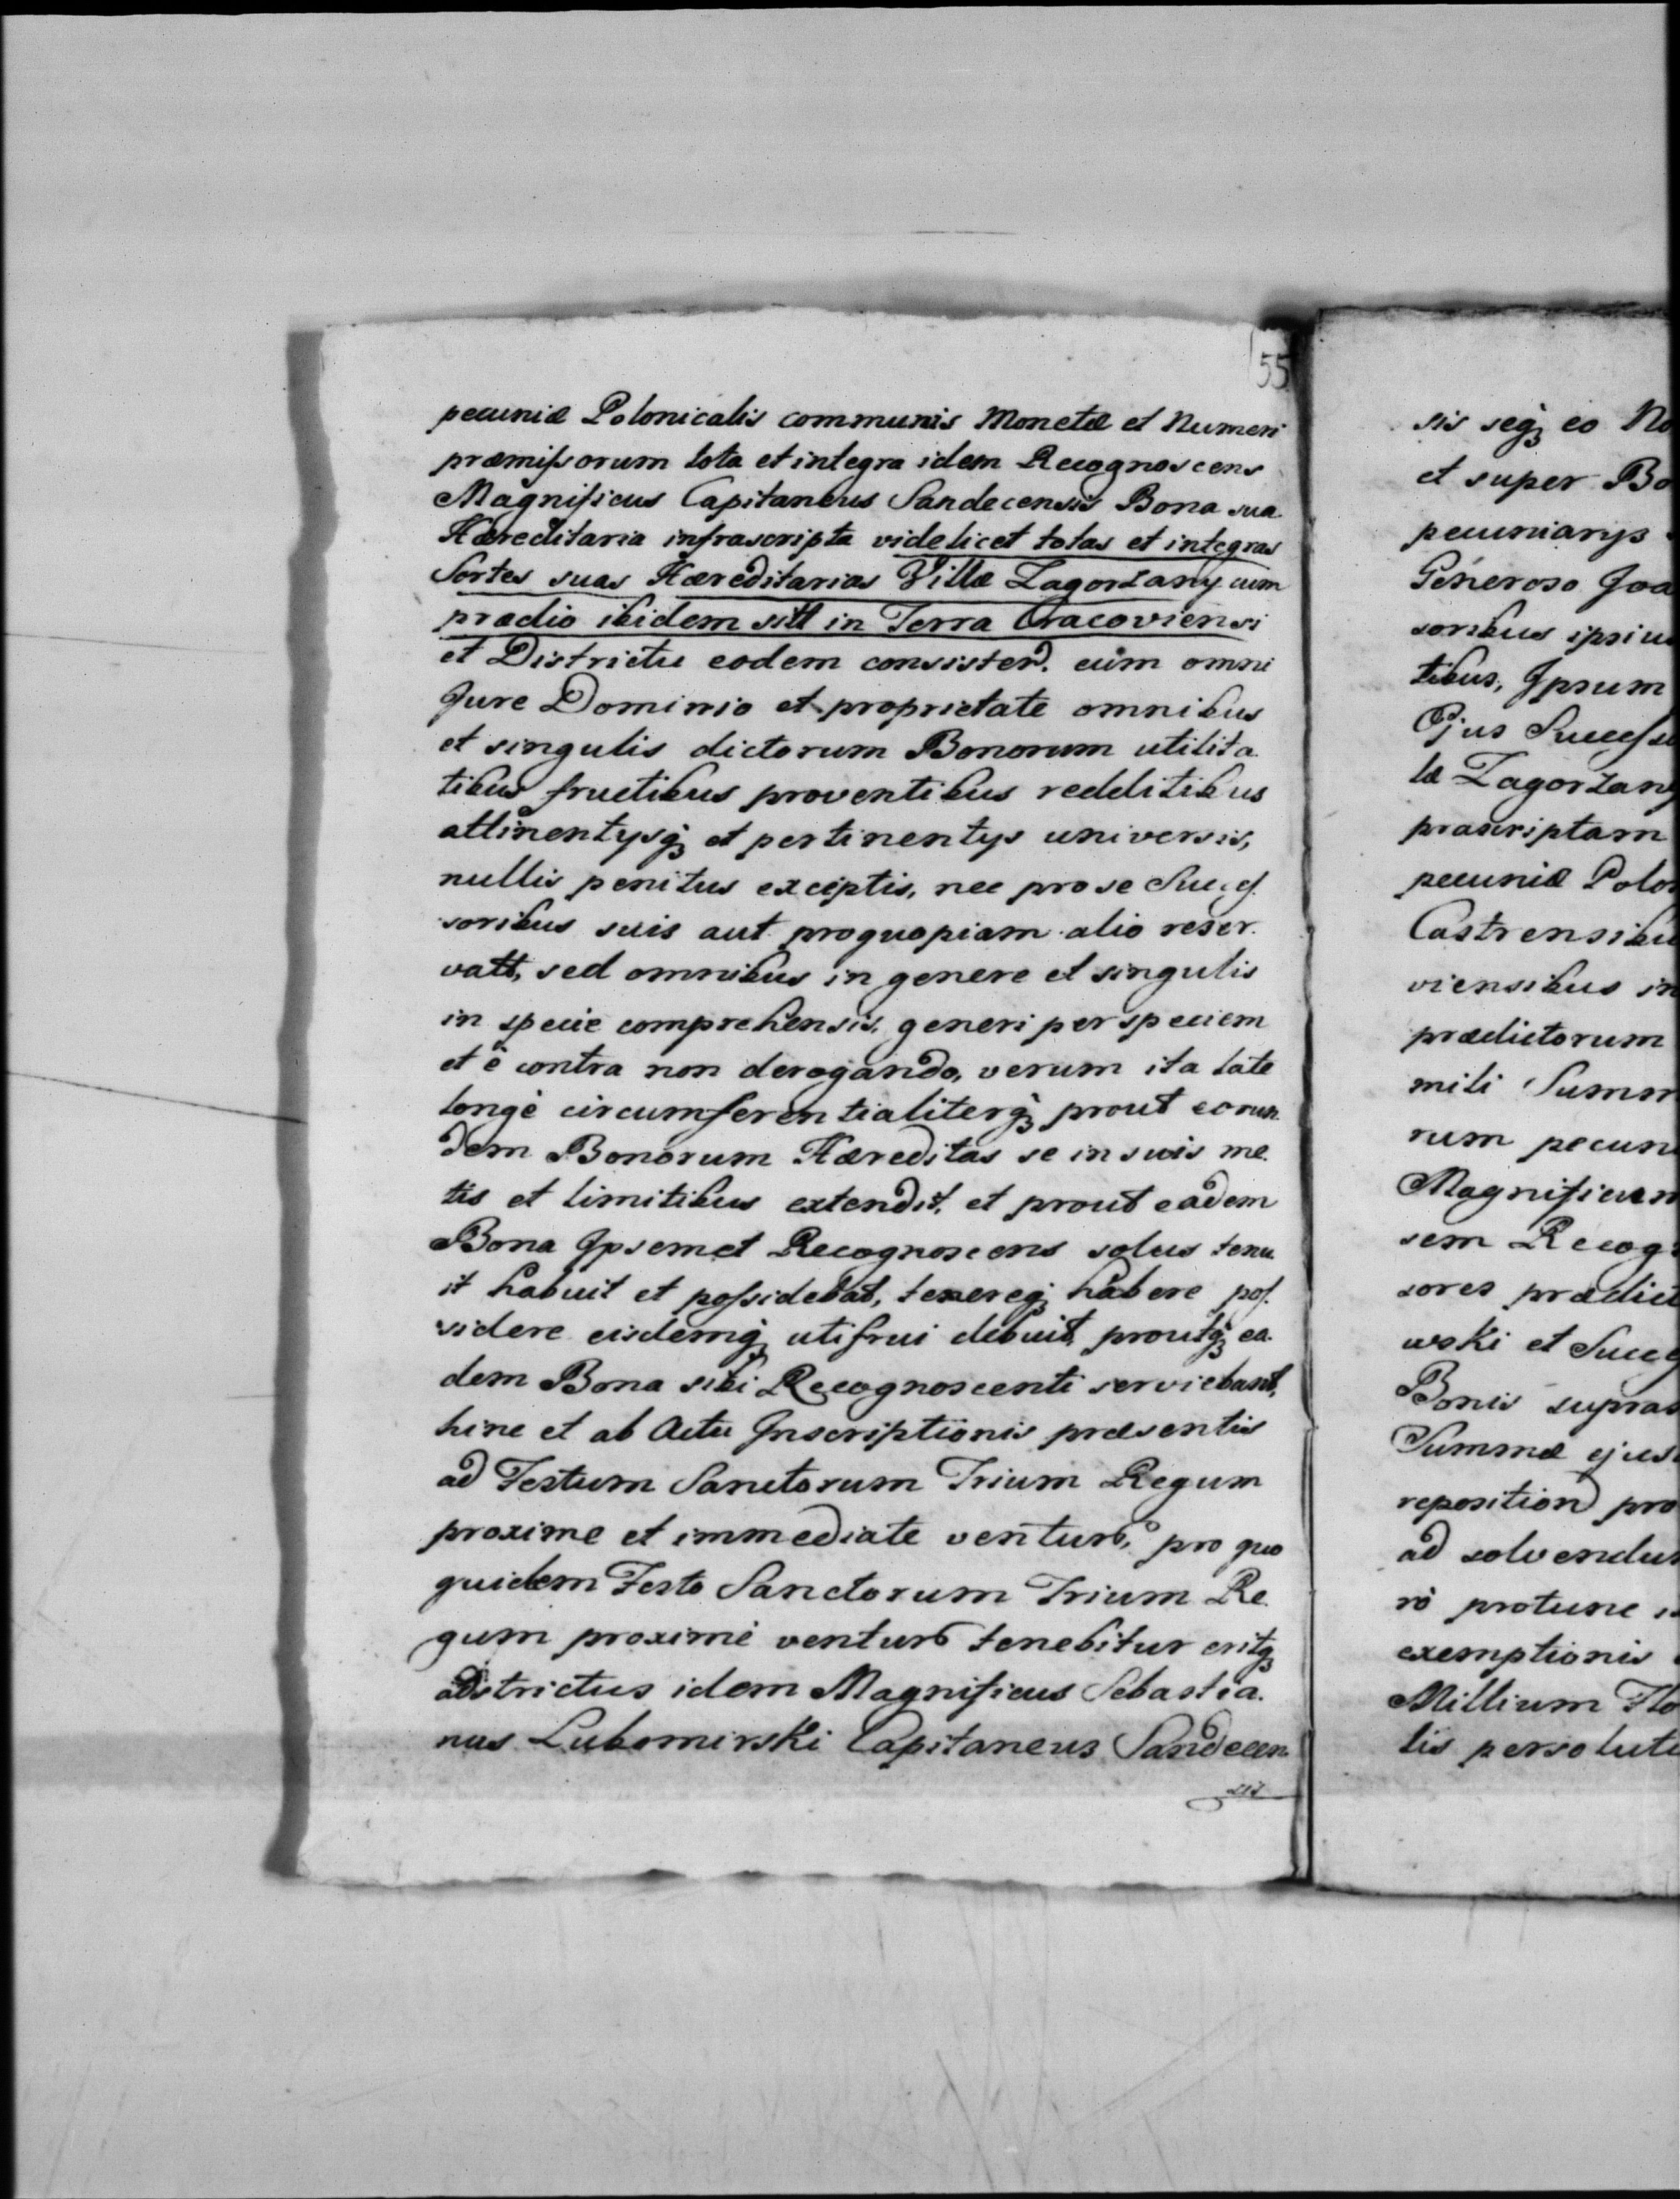 55
pecuniæ Polonicalis communis Monetæ et Numeri
præmiſsorum tota et integra idem Recognoscens
Magnificus Capitaneus Sandecensis Bona sua
Hæreditaria infrascripta videlicet totas et integras
Sortes suas Hæreditarias Villæ Zagorzany cum
prædio ibidem sitt in Terra Cracoviensi
et Districtu eodem consisten. cum omni
Jure Dominio et proprietate omnibus
et singulis dictorum Bonorum utilita.
tibus fructibus proventibus redditibus
attinentysq3 et pertinentys universis,
nullis penitus exceptis, nec pro se Succeſ.
soribus suis aut proquopiam alio reser.
vatt, sed omnibus in genere et singulis
in specie comprehensis, generi per speciem
et è contra non derogando, verum ita late
longè circumferentialiterq3 prout eorun.
dem Bonorum Hæreditas se in suis me.
tis et limitibus extendit, et prout eadem
Bona Ipsemet Recognoscens solus tenu.
it habuit et poſsidebat, tenereq3 habere poſ.
sidere eisdemq3 utifrui debuit, proutq3 ea.
dem Bona sibi Recognoscenti serviebant,
hinc et ab Actu Inscriptionis præsentis
ad Festum Sanctorum Trium Regum
proxime et immediate ventur, pro quo
quidem Festo Sanctorum Trium Re.
gum proximè ventur tenebitur eritq3
adstrictus idem Magnificus Sebastia.
nus Lubomirski Capitaneus Sandecen
sis
sis seq3 eo
et super
pecuniarys
Generoso
soribus
tibus, Ipsum
Ejus
læ Zagorzany
præscriptam
pecuniæ
viensibus in
prædictorum
mili
rum
sem
sores
wski et
Bonis
Summæ
reposition pro
ad
rò protunc
exemptionis
Millium
lis